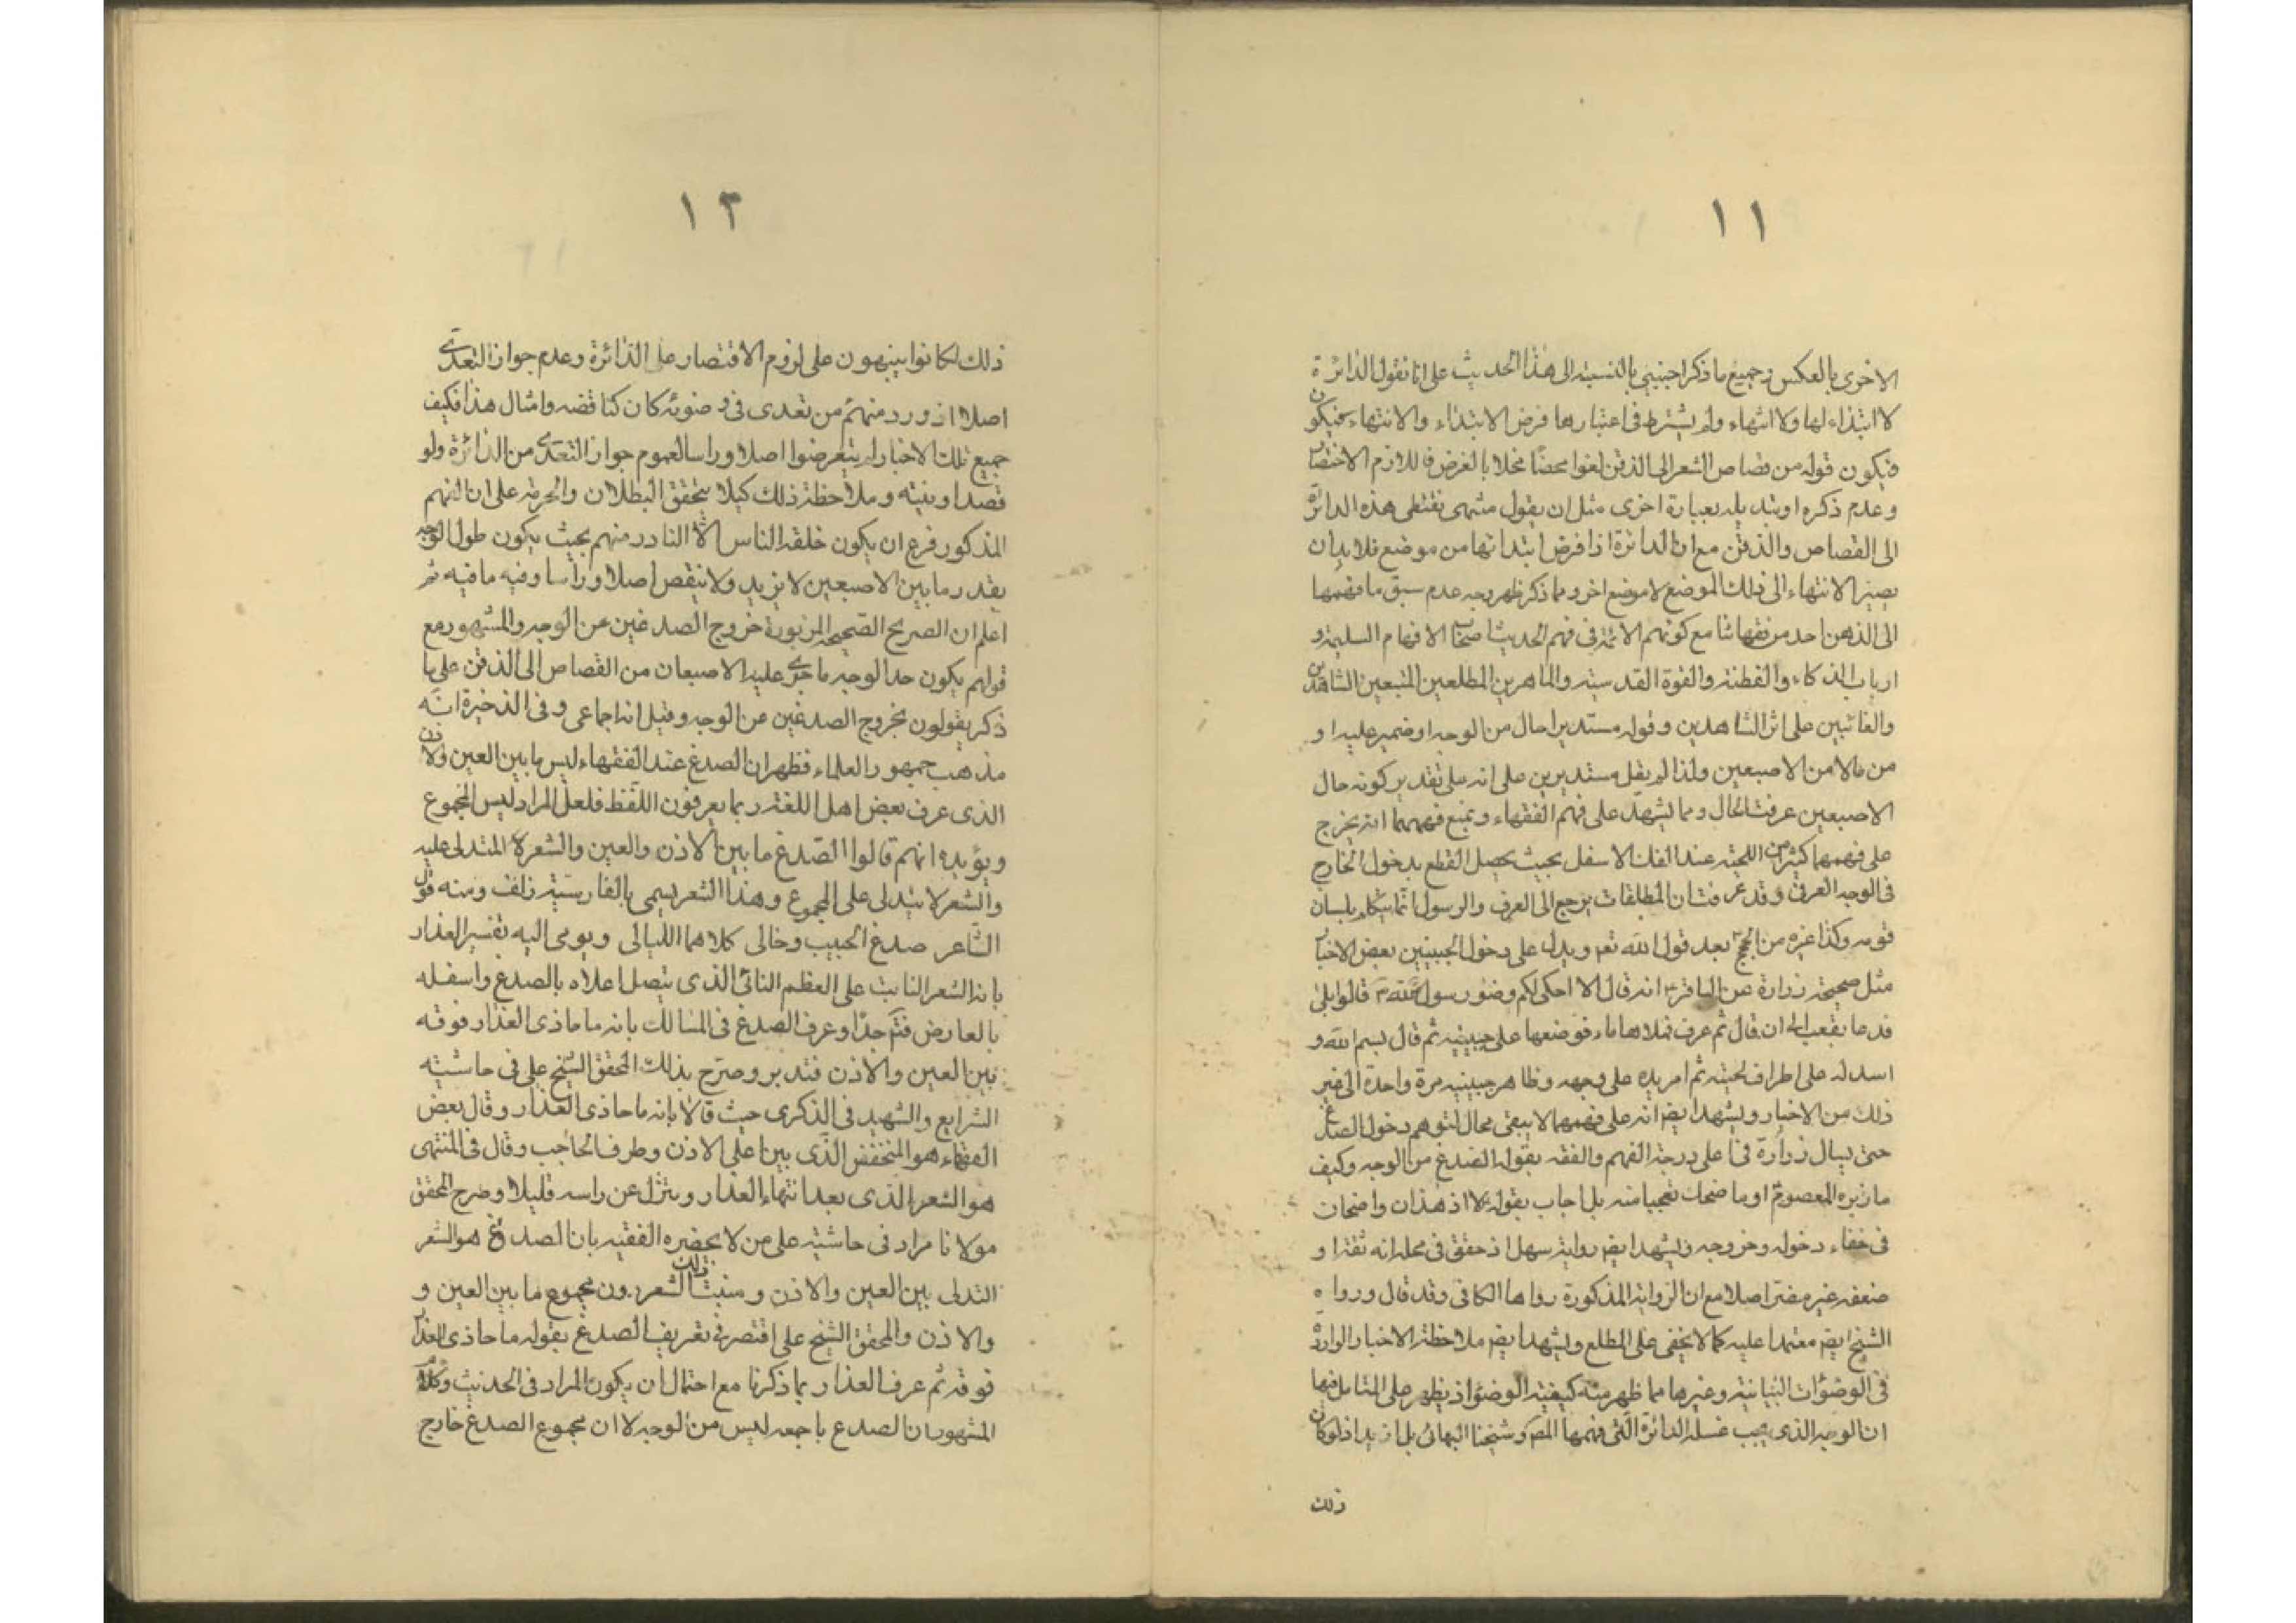 ١١
الاخرى بالعكس وجميع ما ذكر اجنبي بالنسبة الى هذا الحديث على انا نقول الدائرة
لا ابتداء لها ولا انتهاء ولم يشترط فى اعتبارها فرض الابتداء والانتهاء فيكون
فيكون قوله من قصاص الشعر الى الذقن لغوا محضا مخلا بالغرض فاللازم الاختصار
وعدم ذكره او تبديله بعبارة اخرى مثل ان يقول منتهى نقتطى هذه الدائرة
الى القصاص والذقن مع ان الدائرة اذا فرض ابتدائها من موضع فلا بد ان
يصير الانتهاء الى ذلك الموضع لا موضع اخر ومما ذكر ظهر وجه عدم سبق ما فهمها
الى الذهن احد من فقهائنا مع كونهم الائمة فى فهم الحديث اصحاب الافهام السليمة و
ارباب الذكاء والفطنة والقوة القدسية والماهرين المطلعين المتبعين الشاهدين
والغائبين على اثر الشاهدين وقوله مستديرا حال من الوجه او ضمير عليه او
من ما لا من الاصبعين ولذا لم يقل مستديرين على انه على تقدير كونه حال
الاصبعين عرفت الحال ومما يشهد على فهم الفقهاء ويمنع فهمهما انه يخرج
على فهمهما كثير من اللحية عند الفك الاسفل بحيث يحصل القطع بدخول الخارج
فى الوجه العرفى وقد عرفت ان المطلقات يرجع الى العرف والرسول انما يتكلم بلسان
قومه وكذا غيره من الحجج بعد قول الله تعم ويدل على دخول الجبينين بعض الاخبار
مثل صحيحة زرارة عن الباقر انه قال الا احكى لكم وضوء رسول الله قالوا بلى
فدعا بقعب الى ان قال ثم غرف فملاها ماء فوضعها على جبينه ثم قال بسم الله و
اسدله على اطراف لحيته ثم امر يده على وجهه وظاهر جبينيه مرة واحدة الى غير
ذلك من الاخبار ويشهد ايضم انه على فهمهما لا يبقى محال لتوهم دخول الصدغ
حتى يسال زرارة فى اعلى درجة الفهم والفقه بقوله الصدغ من الوجه وكيف
ما زبره المعصوم او ما ضحك تعجبا منه بل اجاب بقوله لا اذ هذان واضحان
فى خفاء دخوله وخروجه ويشهد ايضم رواية سهل اذ حقق فى محله انه ثقة او
ضعفه غير مضر اصلا مع ان الرواية المذكورة رواها الكافى وقد قال ورواه
الشيخ ايضم معتمدا عليه كما لا يخفى على المطلع ويشهد ايضم ملاحظة الاخبار الواردة
فى الوضوات البيانية وغيرها مما ظهر منه كيفية الوضوء اذ يظهر على المتامل فيها
ان الوجه الذى يجب غسله الدائرة التى فهمها المص وشيخنا البهائى بل ازيد اذ لو كان
ذلك
١٢
ذلك لكانوا ينبهون على لزوم الاقتصار على الدائرة وعدم جواز التعدى
اصلا اذ ورد منهم من تعدى فى وضوئه كان كناقضه وامثال هذا فكيف
جميع تلك الاخبار لم يتعرضوا اصلا وراسا لعموم جواز التعدى من الدائرة ولو
قصدا ونيته وملاحظة ذلك كيلا يتحقق البطلان والحرمة على ان الفهم
المذكور فرع ان يكون خلقة الناس الا النادر منهم بحيث يكون طول الوجه
بقدر ما بين الاصبعين لا يزيد ولا ينقص اصلا وراسا وفيه ما فيه ثم
اعلم ان الصريح الصحيحة المزبورة خروج الصدغين من الوجه والمشهور مع
قولهم يكون حد الوجه ما جرى عليه الاصبعان من القصاص الى الذقن على ما
ذكر يقولون بخروج الصدغين من الوجه وقيل انه اجماعى وفى الذخيرة انه
مذهب جمهور العلماء فظهر ان الصدغ عند الفقهاء ليس ما بين العين والاذن
الذى عرف بعض اهل اللغة ربما يعرفون اللفظ فلعل المراد ليس المجموع
ويؤيده انهم قالوا الصدغ ما بين الاذن والعين والشعر المتدلى عليه
والشعر لا يتدلى على المجموع وهذا الشعر يسمى بالفارسية زلف ومنه قول
الشاعر صدغ الحبيب وخالى كلاهما الليالى ويومى اليه تفسير العذار
بانه الشعر النابت على العظم الناتى الذى يتصل اعلاه بالصدغ واسفله
بالعارض فتم جدا وعرف الصدغ فى المسالك بانه ما حاذى العذار فوقه
بين العين والاذن فتدبر وصرح بذلك المحقق الشيخ على فى حاشيته
الشرايع والشهيد فى الذكرى حيث قالا بانه ما حاذى العذار وقال بعض
الفقهاء هو المنخفض الذى بين اعلى الاذن وطرف الحاجب وقال فى المنتهى
هو الشعر الذى بعد انتهاء العذار وينزل عن راسه قليلا وصرح المحقق
مولانا مراد فى حاشيته على من لا يحضره الفقيه بان الصدغ هو الشعر
التدلى بين العين والاذن ومنبت ذلك الشعر دون مجموع ما بين العين و
والاذن والمحقق الشيخ على اقتصر فى تعريف الصدغ بقوله ما حاذى العذار
فوقه ثم عرف العذار بما ذكرنا مع احتمال ان يكون المراد فى الحديث وكلام
المشهور ان الصدغ باجمعه ليس من الوجه لا ان مجموع الصدغ خارج